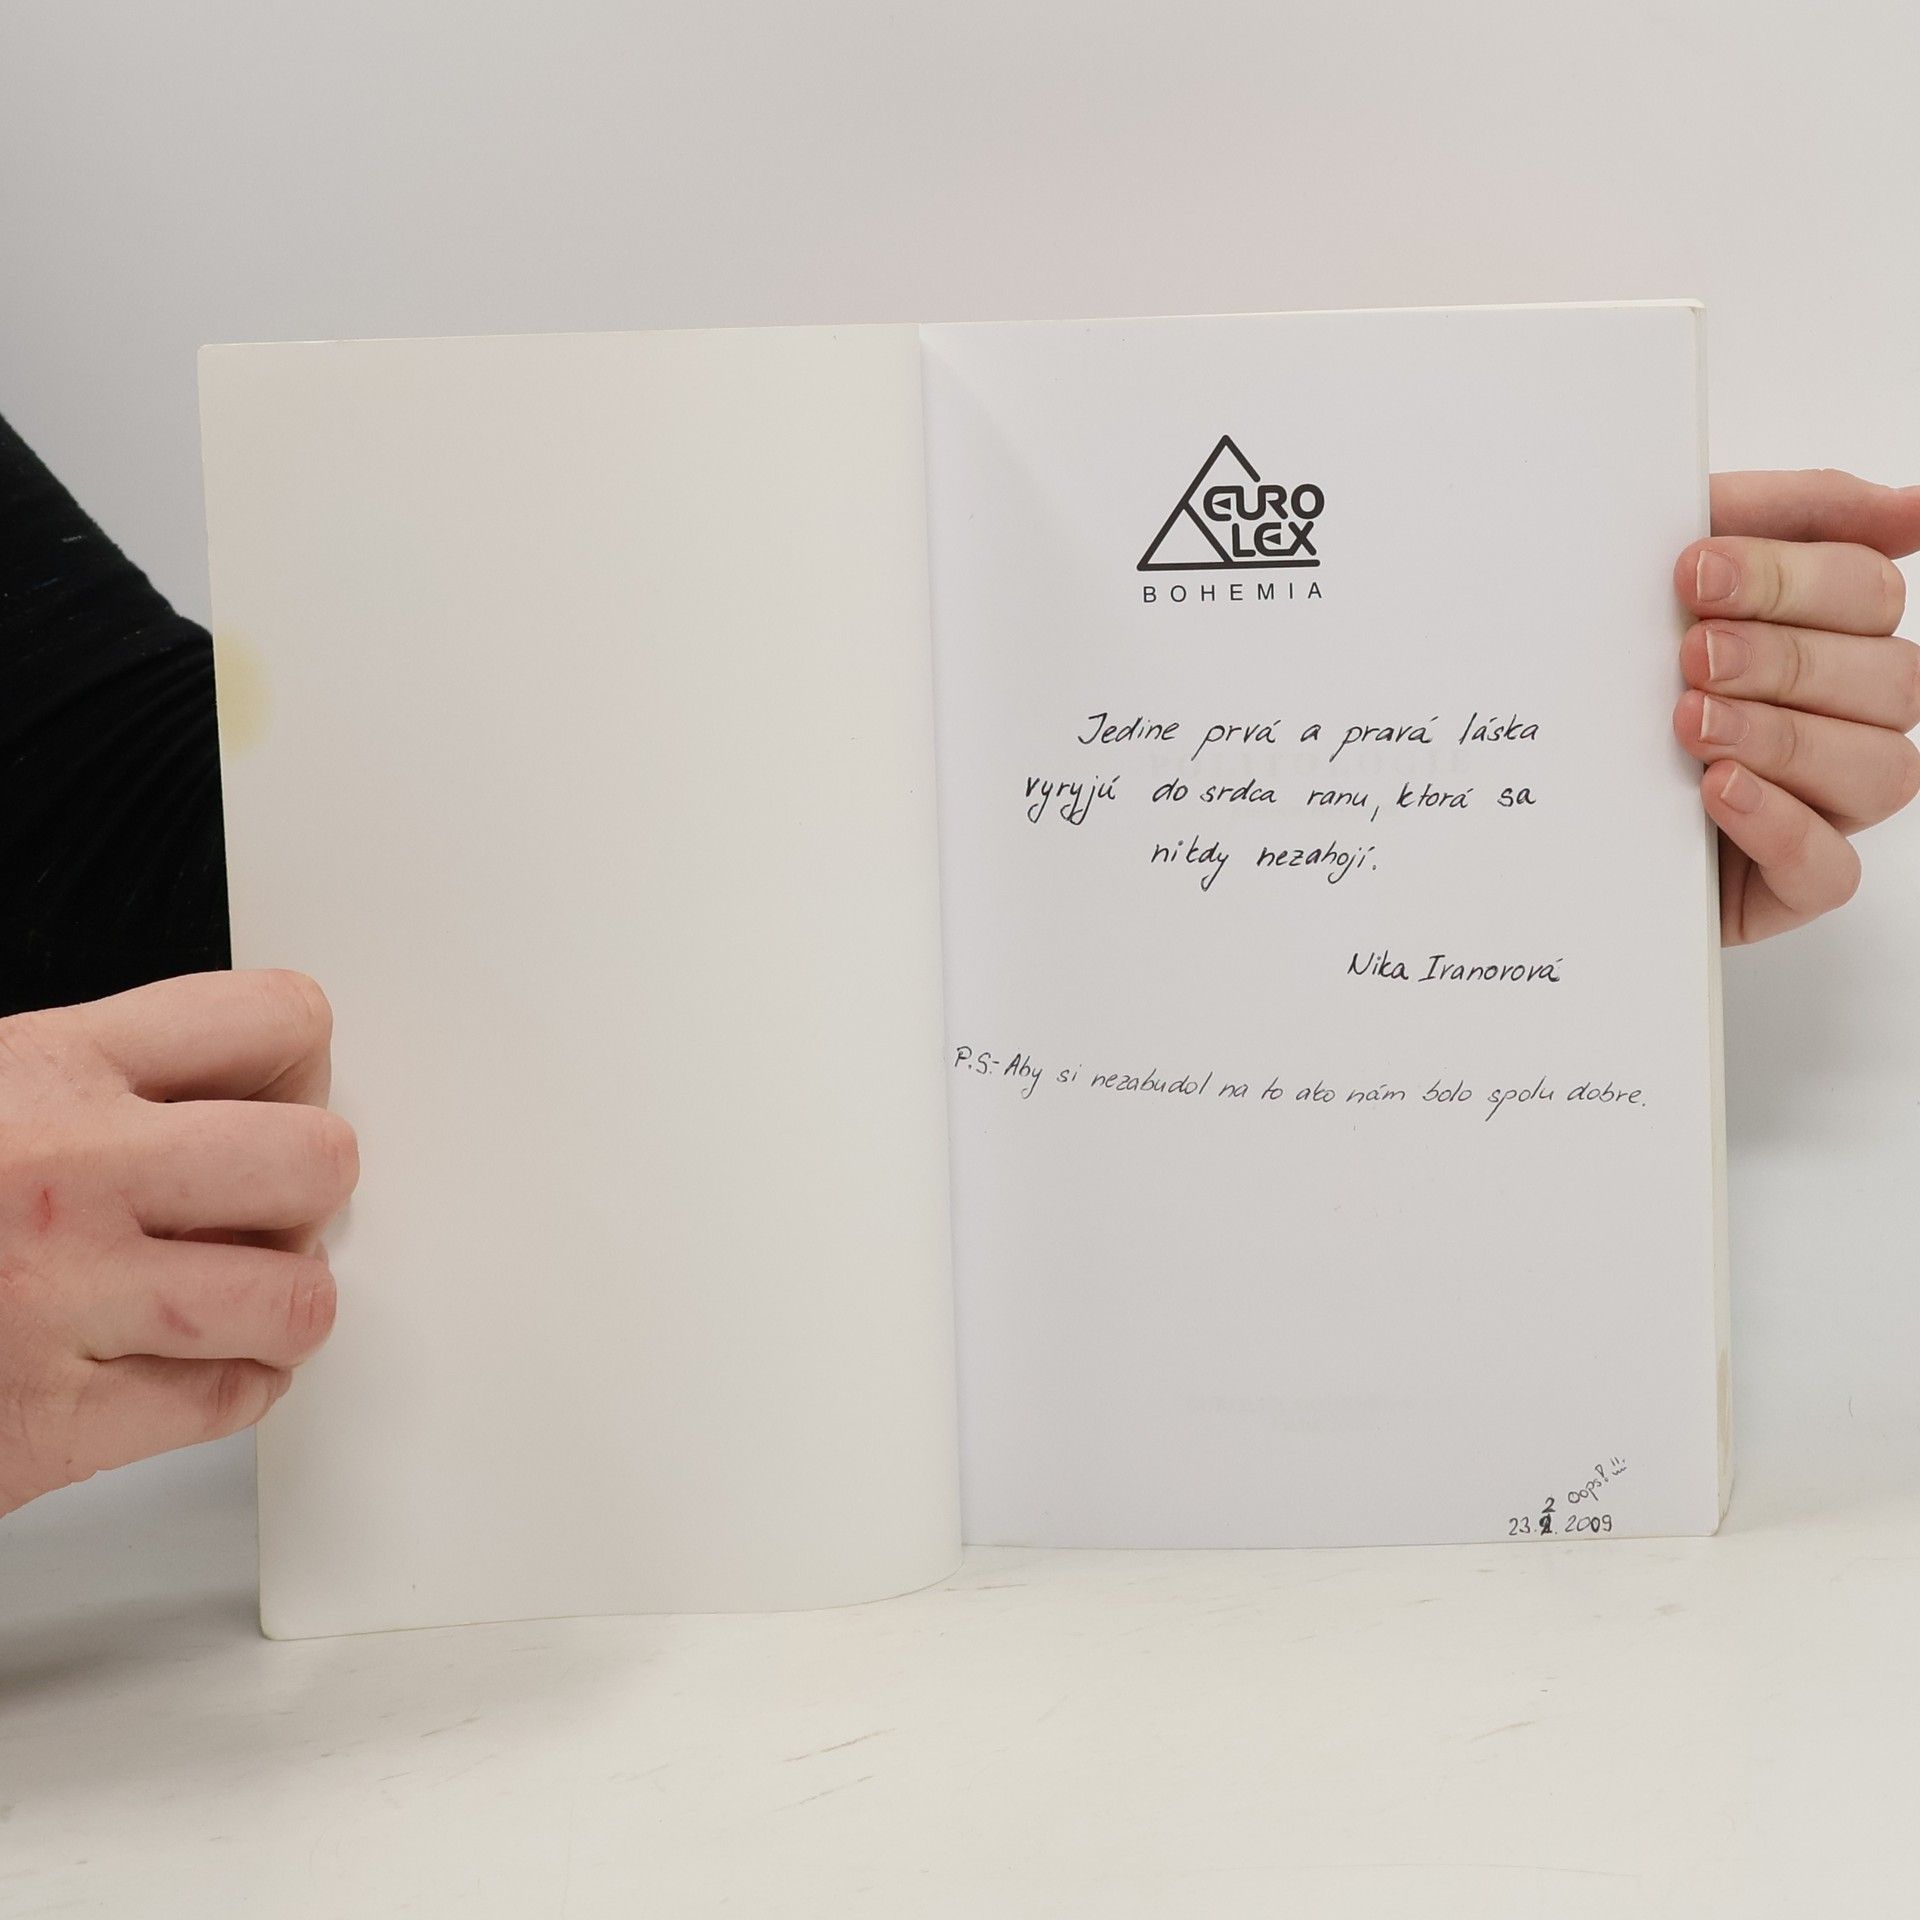 EURO
LEX
BOHEMIA
Jedine prvá a pravá láska
vyryjú do srdca ranu, ktorá sa
nikdy nezahojí.
Nika Ivanovová
P.S.- Aby si nezabudol na to ako nám bolo spolu dobre.
Oops!!!
2
23. 2. 2009